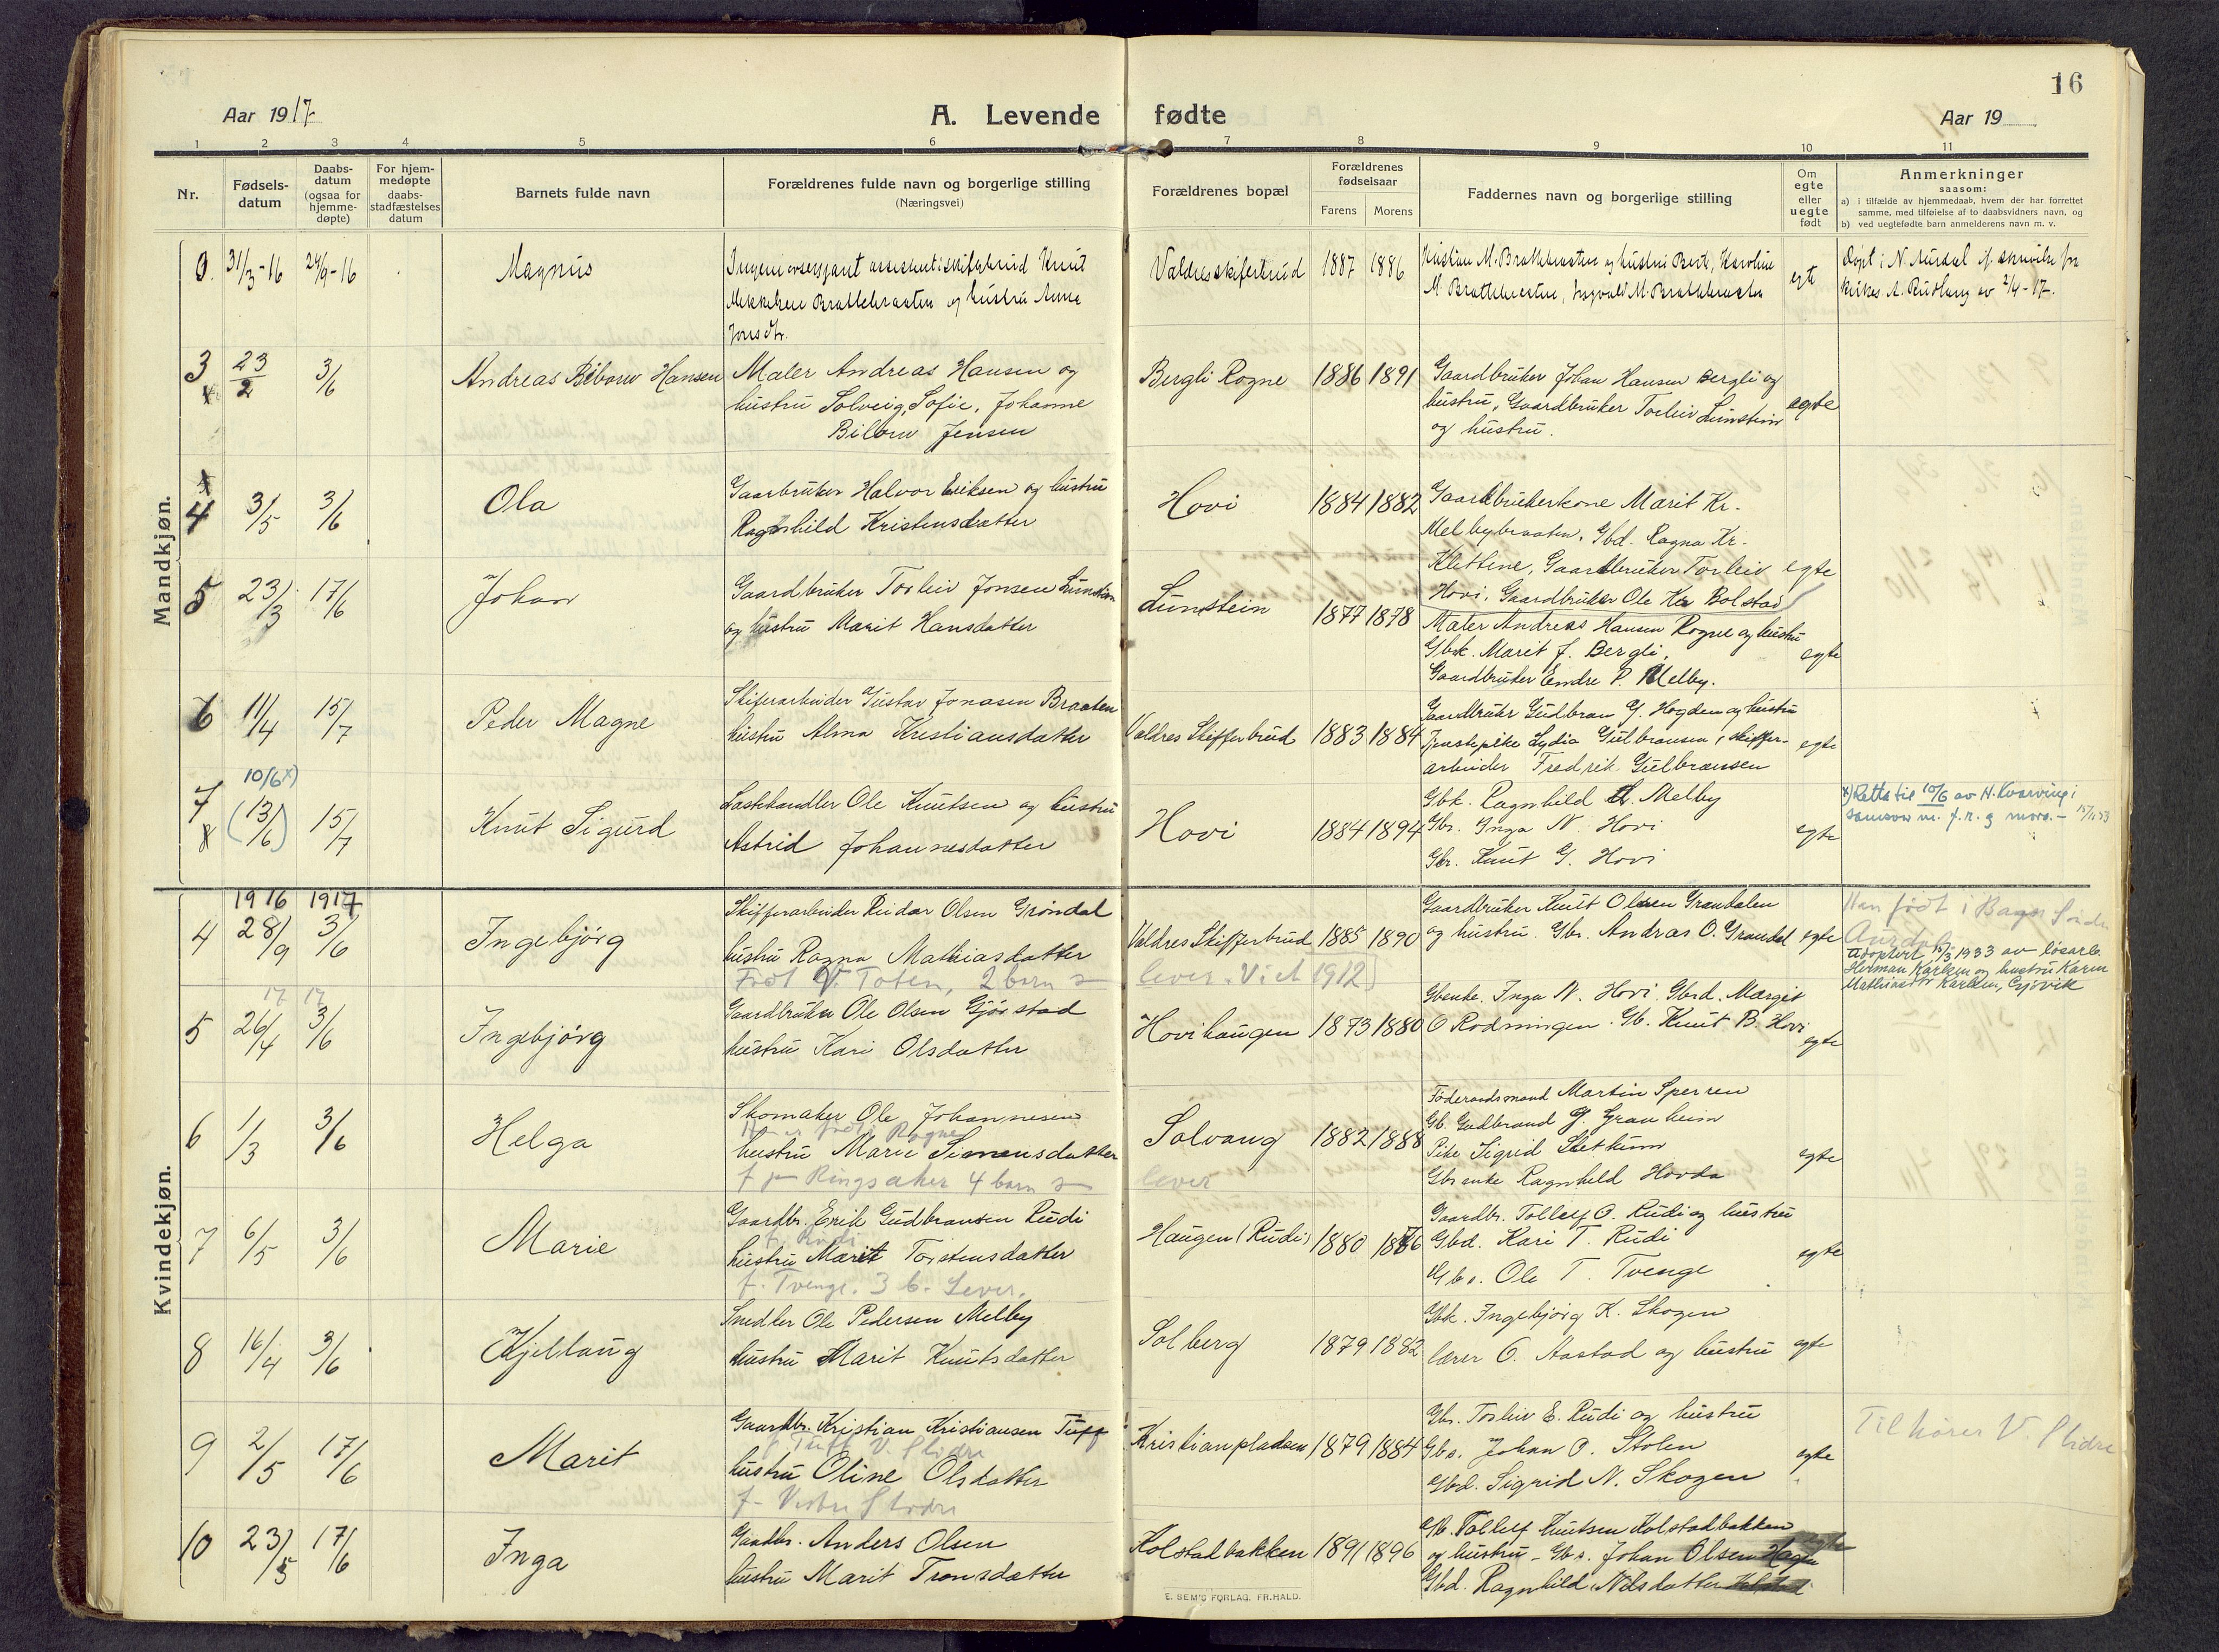 16
Aar 1917
A. Levende fødte
Aar 19
1 2 3 4 5 6 7 8 9 10 11
Nr.
Fødsels-
datum
Daabs-
datum
(ogsaa for
hjemme-
døpte)
For hjem-
medøpte
daabs-
stadfæstelses
datum
Barnets fulde navn
Forældrenes fulde navn og borgerlige stilling
(Næringsvei)
Forældrenes bopæl
Forældrenes
fødselsaar
Farens Morens
Faddernes navn og borgerlige stilling
Om
egte
eller
uegte
født
Anmerkninger
saasom:
a) i tilfælde av hjemmedaab, hvem der har forrettet
samme, med tilføielse af to daabsvidners navn, og
b) ved uegtefødte barn anmelderens navn m. v.
Mandkjøn.
0. 31/3-16 24/9-16
Magnus
Knut
Brattebraaten og hustru Anna
Jonsdtr.
Valdresskiferbrud 1887 1886
Kristian M. Brattebraaten og hustru Berte, Karoline
M. Brattebraaten, Ingvald M. Brattebraaten
egte
Døpt i N. Aurdal
A. Rudlang av 2/4-17.
3 x 23/2 3/6
Andreas Biborw Hansen
Maler Andreas Hansen og
hustru Solveig, Sofie, Johanne
Bilow Jensen
Bergli Rogne 1886 1891
Gaardbruker Johan Hansen Bergli og
hustru, Gaardbruker Torleiv Lunstein
og hustru.
egte
x 4 3/5 3/6
Ola
Gaarbruker Halvor Eriksen og hustru
Ragnhild Kristensdatter
Hovi 1884 1882
Gaardbrukerkone Marit Kr.
Melbybraaten, Gbd. Ragna Kr.
Klettene, Gaardbruker Torleiv
Hovi, Gaardbruker Ole Kr Bolstad
egte
5 23/3 17/6
Johan
Gaardbruker Torleiv Jonsen Lunstein
og hustru Marit Hansdatter
Lunstein 1877 1878
Maler Andreas Hansen Rogne og hustru
Gbk. Marit J. Bergli,
Gaardbruker Endre P. Melby.
egte
6 11/4 15/7
Peder Magne
Skiferarbeider Gustav Jonasen Braaten
hustru Alma Kristiansdatter
Valdres Skifferbrud 1883 1884
Gaardbruker Gudbran G. Hegden og hustru
Tjenstepike Lydia Gulbransen, skiffer-
arbeider Fredrik Gulbransen
egte
7 x 10/6 x) (13/6) 15/7
Knut Sigurd
Lastehandler Ole Knutsen og hustru
Astrid Johannesdatter
Hovi 1884 1894
Gbk. Ragnhild Melby
Gbr. Inga N. Hovi
Gbr. Knut G. Hovi
egte
x) Rettet til 10/6 av H. Kvarving i
samsvar m. f.r. og mora.-
Kvindekjøn.
1916 1917
4 28/9 3/6
Ingebjørg
Skifferarbeider Reidar Olsen Grøndal
hustru Ragna Mathiasdatter
Født V. Toten, 2 barn
Valdres Skifferbrud 1885 1890
lever. Viet 1912
Gaardbruker Knut Olsen Grøndalen
og hustru. Gbr. Andras O. Grøndal
egte
Han født i Bagn Søndre
Aurdal
Adoptert 15/3 1933 av løsarb.
Herman Karlsen og hustru Karen
Mathiasdtr Karlsen, Gjøvik
17 17
5 26/4 3/6
Ingebjørg
Gaardbruker Ole Olsen Gjørstad
hustru Kari Olsdatter
Hovihaugen 1873 1880
Gbenke. Inga N. Hovi. Gbrd. Margit
O Rodningen. Gb. Knut B. Hovi
egte
6 1/3 3/6
Helga
Skomaker Ole Johannesen
født i Rogne
hustru Marie Simensdatter
f. Ringsaker 4 barn
Solvang 1882 1888
lever
Føderaadsmand Martin Sperren
Gb. Gudbrand G. Grauheim
Pike Sigrid Slettum
Gbrenke Ragnhild Hovda
egte
7 6/5 3/6
Marie
Gaardbr. Erik Gudbransen Rudi
f. Rudi
hustru Marit Torstensdatter
f. Tvenge. 3 b. Lever.
Haugen (Rudi) 1880 1886
Gaardbr. Tollef O. Rudi og hustru
Gbd. Kari T. Rudi
Gbs. Ole T. Tvenge
egte
8 16/4 3/6
Kjellaug
Snedker Ole Pedersen Melby
hustru Marit Knutsdatter
Solberg 1879 1882
Gbk. Ingebjørg K. Skogen
lærer O. Aastad og hustru
egte
9 2/5 17/6
Marit
Gaardbr. Kristian Kristiansen Tuff
f. Tuff V. Slidre
hustru Oline Olsdatter
f. Vestre Slidre
Kristianpladsen 1879 1884
Gbr. Torleiv E. Rudi og hustru
Gbs. Johan O. Stolen
Gbd. Sigrid N. Skogen
egte
Tilhører V. Slidre
10 23/5 17/6
Inga
Gaardbr. Anders Olsen
hustru Marit Tronsdatter
Kolstadbakken 1891 1896
Gb. Tollef Knutsen Kolstadbakken
og hustru - Gbs. Johan Olsen Hagen
Gbd. Ragnhild Nilsdatter
egte
E. SEM'S FORLAG, FR.HALD.